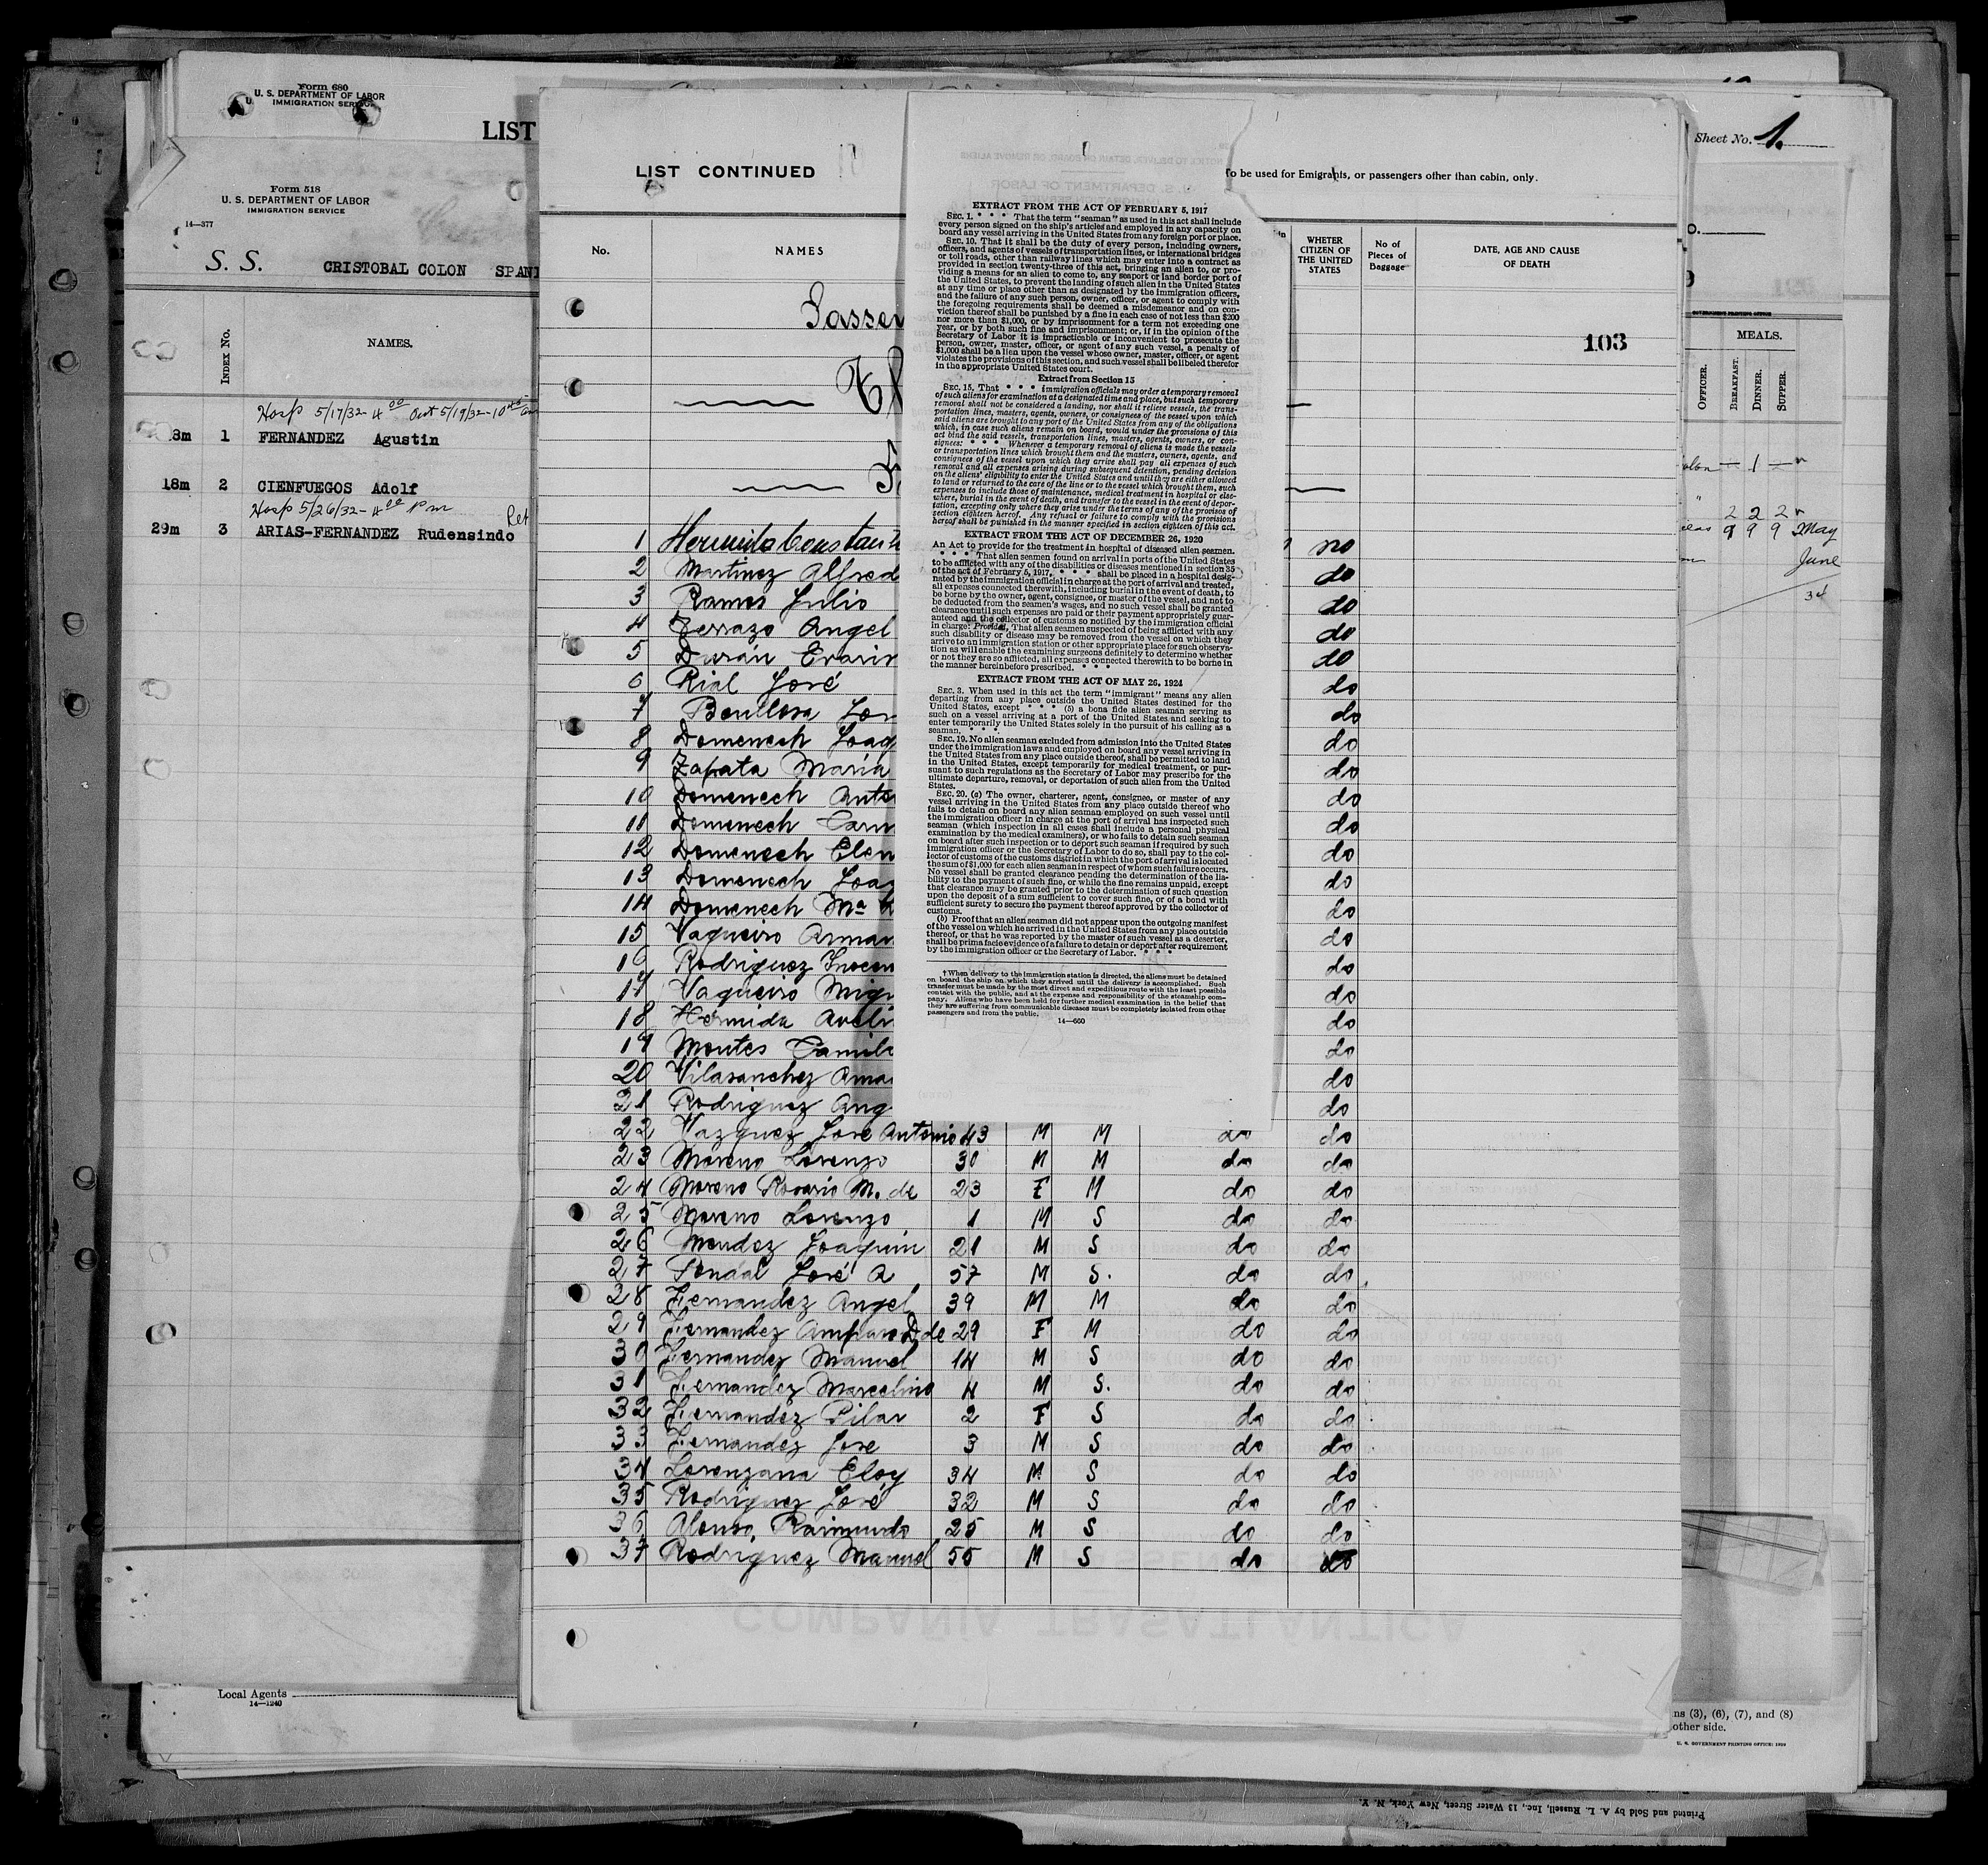 Form 680
U. S. DEPARTMENT OF LABOR
IMMIGRATION SERVICE
LIST
Form 518
U. S. DEPARTMENT OF LABOR
IMMIGRATION SERVICE
14—377
S. S. CRISTOBAL COLON SPANI
INDEX No. NAMES.
Hosp 5/17/32 - 4 00 Out 5/19/32 - 10 45 am
8m 1 FERNANDEZ Agustin
18m 2 CIENFUEGOS Adolf
Hosp 5/26/32 - 4 00 Pm
29m 3 ARIAS-FERNANDEZ Rudensindo
Local Agents
14—1240
LIST CONTINUED
To be used for Emigrants, or passengers other than cabin, only.
No. NAMES
WHETER CITIZEN OF THE UNITED STATES
No of Pieces of Baggage
DATE, AGE AND CAUSE OF DEATH
103
1 no
2 Martinez Alfred do
3 Ramos Julio do
4 Terrazo Angel do
5 Durán do
6 Rial José do
7 do
8 Domenech Joaq do
9 Zapata Maria do
10 Domenech Anto do
11 Domenech Carm do
12 Domenech Elen do
13 Domenech Joaq do
14 Domenech Mª do
15 Vaqueiro Arman do
16 Rodriguez Inocen do
17 Vaqueiro Migu do
18 Hermida Aveli do
19 Montes Camilo do
20 Vilasanchez Ama do
21 Rodriguez Ang do
22 Vazquez José Antonio 43 M M do do
23 Moreno Lorenzo 30 M M do do
24 Moreno Rosario M. de 23 F M do do
25 Moreno Lorenzo 1 M S do do
26 Mendez Joaquin 21 M S do do
27 José A 57 M S. do do
28 Fernandez Angel 39 M M do do
29 Fernandez Amparo D. de 29 F M do do
30 Fernandez Manuel 14 M S do do
31 Fernandez Marcelino 4 M S. do do
32 Fernandez Pilar 2 F S do do
33 Fernandez Jose 3 M S do do
34 Lorenzana Eloy 34 M S do do
35 Rodriguez José 32 M S do do
36 Alonso Raimundo 25 M S do do
37 Rodriguez Manuel 55 M S do do
COMPAÑIA TRASATLÁNTICA
EXTRACT FROM THE ACT OF FEBRUARY 5, 1917
SEC. 1. * * * That the term "seaman" as used in this act shall include
every person signed on the ship's articles and employed in any capacity on
board any vessel arriving in the United States from any foreign port or place.
SEC. 10. That it shall be the duty of every person, including owners,
officers, and agents of vessels of transportation lines, or international bridges
or toll roads, other than railway lines which may enter into a contract as
provided in section twenty-three of this act, bringing an alien to, or pro-
viding a means for an alien to come to, any seaport or land border port of
the United States, to prevent the landing of such alien in the United States
at any time or place other than as designated by the immigration officers,
and the failure of any such person, owner, officer, or agent to comply with
the foregoing requirements shall be deemed a misdemeanor and on con-
viction thereof shall be punished by a fine in each case of not less than $200
nor more than $1,000, or by imprisonment for a term not exceeding one
year, or by both such fine and imprisonment; or, if in the opinion of the
Secretary of Labor it is impracticable or inconvenient to prosecute the
person, owner, master, officer, or agent of any such vessel, a penalty of
$1,000 shall be a lien upon the vessel whose owner, master, officer, or agent
violates the provisions of this section, and such vessel shall be libeled therefor
in the appropriate United States court.
Extract from Section 15
SEC. 15. That * * * immigration officials may order a temporary removal
of such aliens for examination at a designated time and place, but such temporary
removal shall not be considered a landing, nor shall it relieve vessels, the trans-
portation lines, masters, agents, owners, or consignees of the vessel upon which
said aliens are brought to any port of the United States from any of the obligations
which, in case such aliens remain on board, would under the provisions of this
act bind the said vessels, transportation lines, masters, agents, owners, or con-
signees: * * * Whenever a temporary removal of aliens is made the vessels
or transportation lines which brought them and the masters, owners, agents, and
consignees of the vessel upon which they arrive shall pay all expenses of such
removal and all expenses arising during subsequent detention, pending decision
on the aliens' eligibility to enter the United States and until they are either allowed
to land or returned to the care of the line or to the vessel which brought them, such
expenses to include those of maintenance, medical treatment in hospital or else-
where, burial in the event of death, and transfer to the vessel in the event of depor-
tation, excepting only where they arise under the terms of any of the provisos of
section eighteen hereof. Any refusal or failure to comply with the provisions
hereof shall be punished in the manner specified in section eighteen of this act.
EXTRACT FROM THE ACT OF DECEMBER 26, 1920
An Act to provide for the treatment in hospital of diseased alien seamen.
* * * That alien seamen found on arrival in ports of the United States
to be afflicted with any of the disabilities or diseases mentioned in section 35
of the act of February 5, 1917, * * * shall be placed in a hospital desig-
nated by the immigration official in charge at the port of arrival and treated,
all expenses connected therewith, including burial in the event of death, to
be borne by the owner, agent, consignee, or master of the vessel, and not to
be deducted from the seamen's wages, and no such vessel shall be granted
clearance until such expenses are paid or their payment appropriately guar-
anteed and the collector of customs so notified by the immigration official
in charge: Provided, That alien seamen suspected of being afflicted with any
such disability or disease may be removed from the vessel on which they
arrive to an immigration station or other appropriate place for such observa-
tion as will enable the examining surgeons definitely to determine whether
or not they are so afflicted, all expenses connected therewith to be borne in
the manner hereinbefore prescribed. * * *
EXTRACT FROM THE ACT OF MAY 26, 1924
SEC. 3. When used in this act the term "immigrant" means any alien
departing from any place outside the United States destined for the
United States, except * * * (5) a bona fide alien seaman serving as
such on a vessel arriving at a port of the United States and seeking to
enter temporarily the United States solely in the pursuit of his calling as a
seaman. * * *
SEC. 19. No alien seaman excluded from admission into the United States
under the immigration laws and employed on board any vessel arriving in
the United States from any place outside thereof, shall be permitted to land
in the United States, except temporarily for medical treatment, or pur-
suant to such regulations as the Secretary of Labor may prescribe for the
ultimate departure, removal, or deportation of such alien from the United
States.
SEC. 20. (a) The owner, charterer, agent, consignee, or master of any
vessel arriving in the United States from any place outside thereof who
fails to detain on board any alien seaman employed on such vessel until
the immigration officer in charge at the port of arrival has inspected such
seaman (which inspection in all cases shall include a personal physical
examination by the medical examiners), or who fails to detain such seaman
on board after such inspection or to deport such seaman if required by such
immigration officer or the Secretary of Labor to do so, shall pay to the col-
lector of customs of the customs district in which the port of arrival is located
the sum of $1,000 for each alien seaman in respect of whom such failure occurs.
No vessel shall be granted clearance pending the determination of the lia-
bility to the payment of such fine, or while the fine remains unpaid, except
that clearance may be granted prior to the determination of such question
upon the deposit of a sum sufficient to cover such fine, or of a bond with
sufficient surety to secure the payment thereof approved by the collector of
customs.
(b) Proof that an alien seaman did not appear upon the outgoing manifest
of the vessel on which he arrived in the United States from any place outside
thereof, or that he was reported by the master of such vessel as a deserter,
shall be prima facie evidence of a failure to detain or deport after requirement
by the immigration officer or the Secretary of Labor. * * *
†When delivery to the immigration station is directed, the aliens must be detained
on board the ship on which they arrived until the delivery is accomplished. Such
transfer must be made by the most direct and expeditious route with the least possible
contact with the public, and at the expense and responsibility of the steamship com-
pany. Aliens who have been held for further medical examination in the belief that
they are suffering from communicable diseases must be completely isolated from other
passengers and from the public.
14—660
Sheet No. 1.
MEALS.
OFFICER. BREAKFAST. DINNER. SUPPER.
1
2 2 2
9 9 9 May
June
34
ns (3), (6), (7), and (8)
other side.
U. S. GOVERNMENT PRINTING OFFICE: 1929
Printed and Sold by A. L. Russell, Inc., 13 Water Street, New York, N. Y.